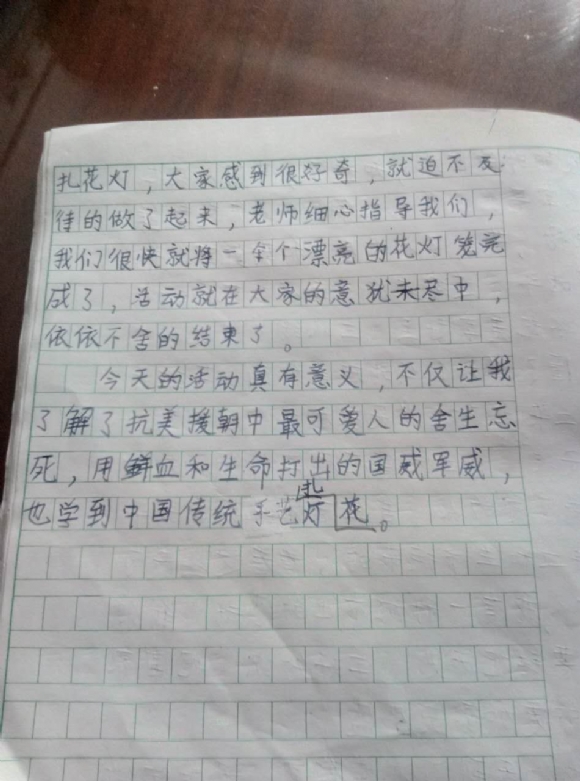 扎花灯，大家感到很好奇，就迫不及
待的做了起来，老师细心指导我们，
我们很快就将一个个漂亮的花灯笼完
成了，活动就在大家的意犹未尽中，
依依不舍的结束了。
今天的活动真有意义，不仅让我
了解了抗美援朝中最可爱人的舍生忘
死，用鲜血和生命打出的国威军威，
也学到中国传统手艺扎灯花。